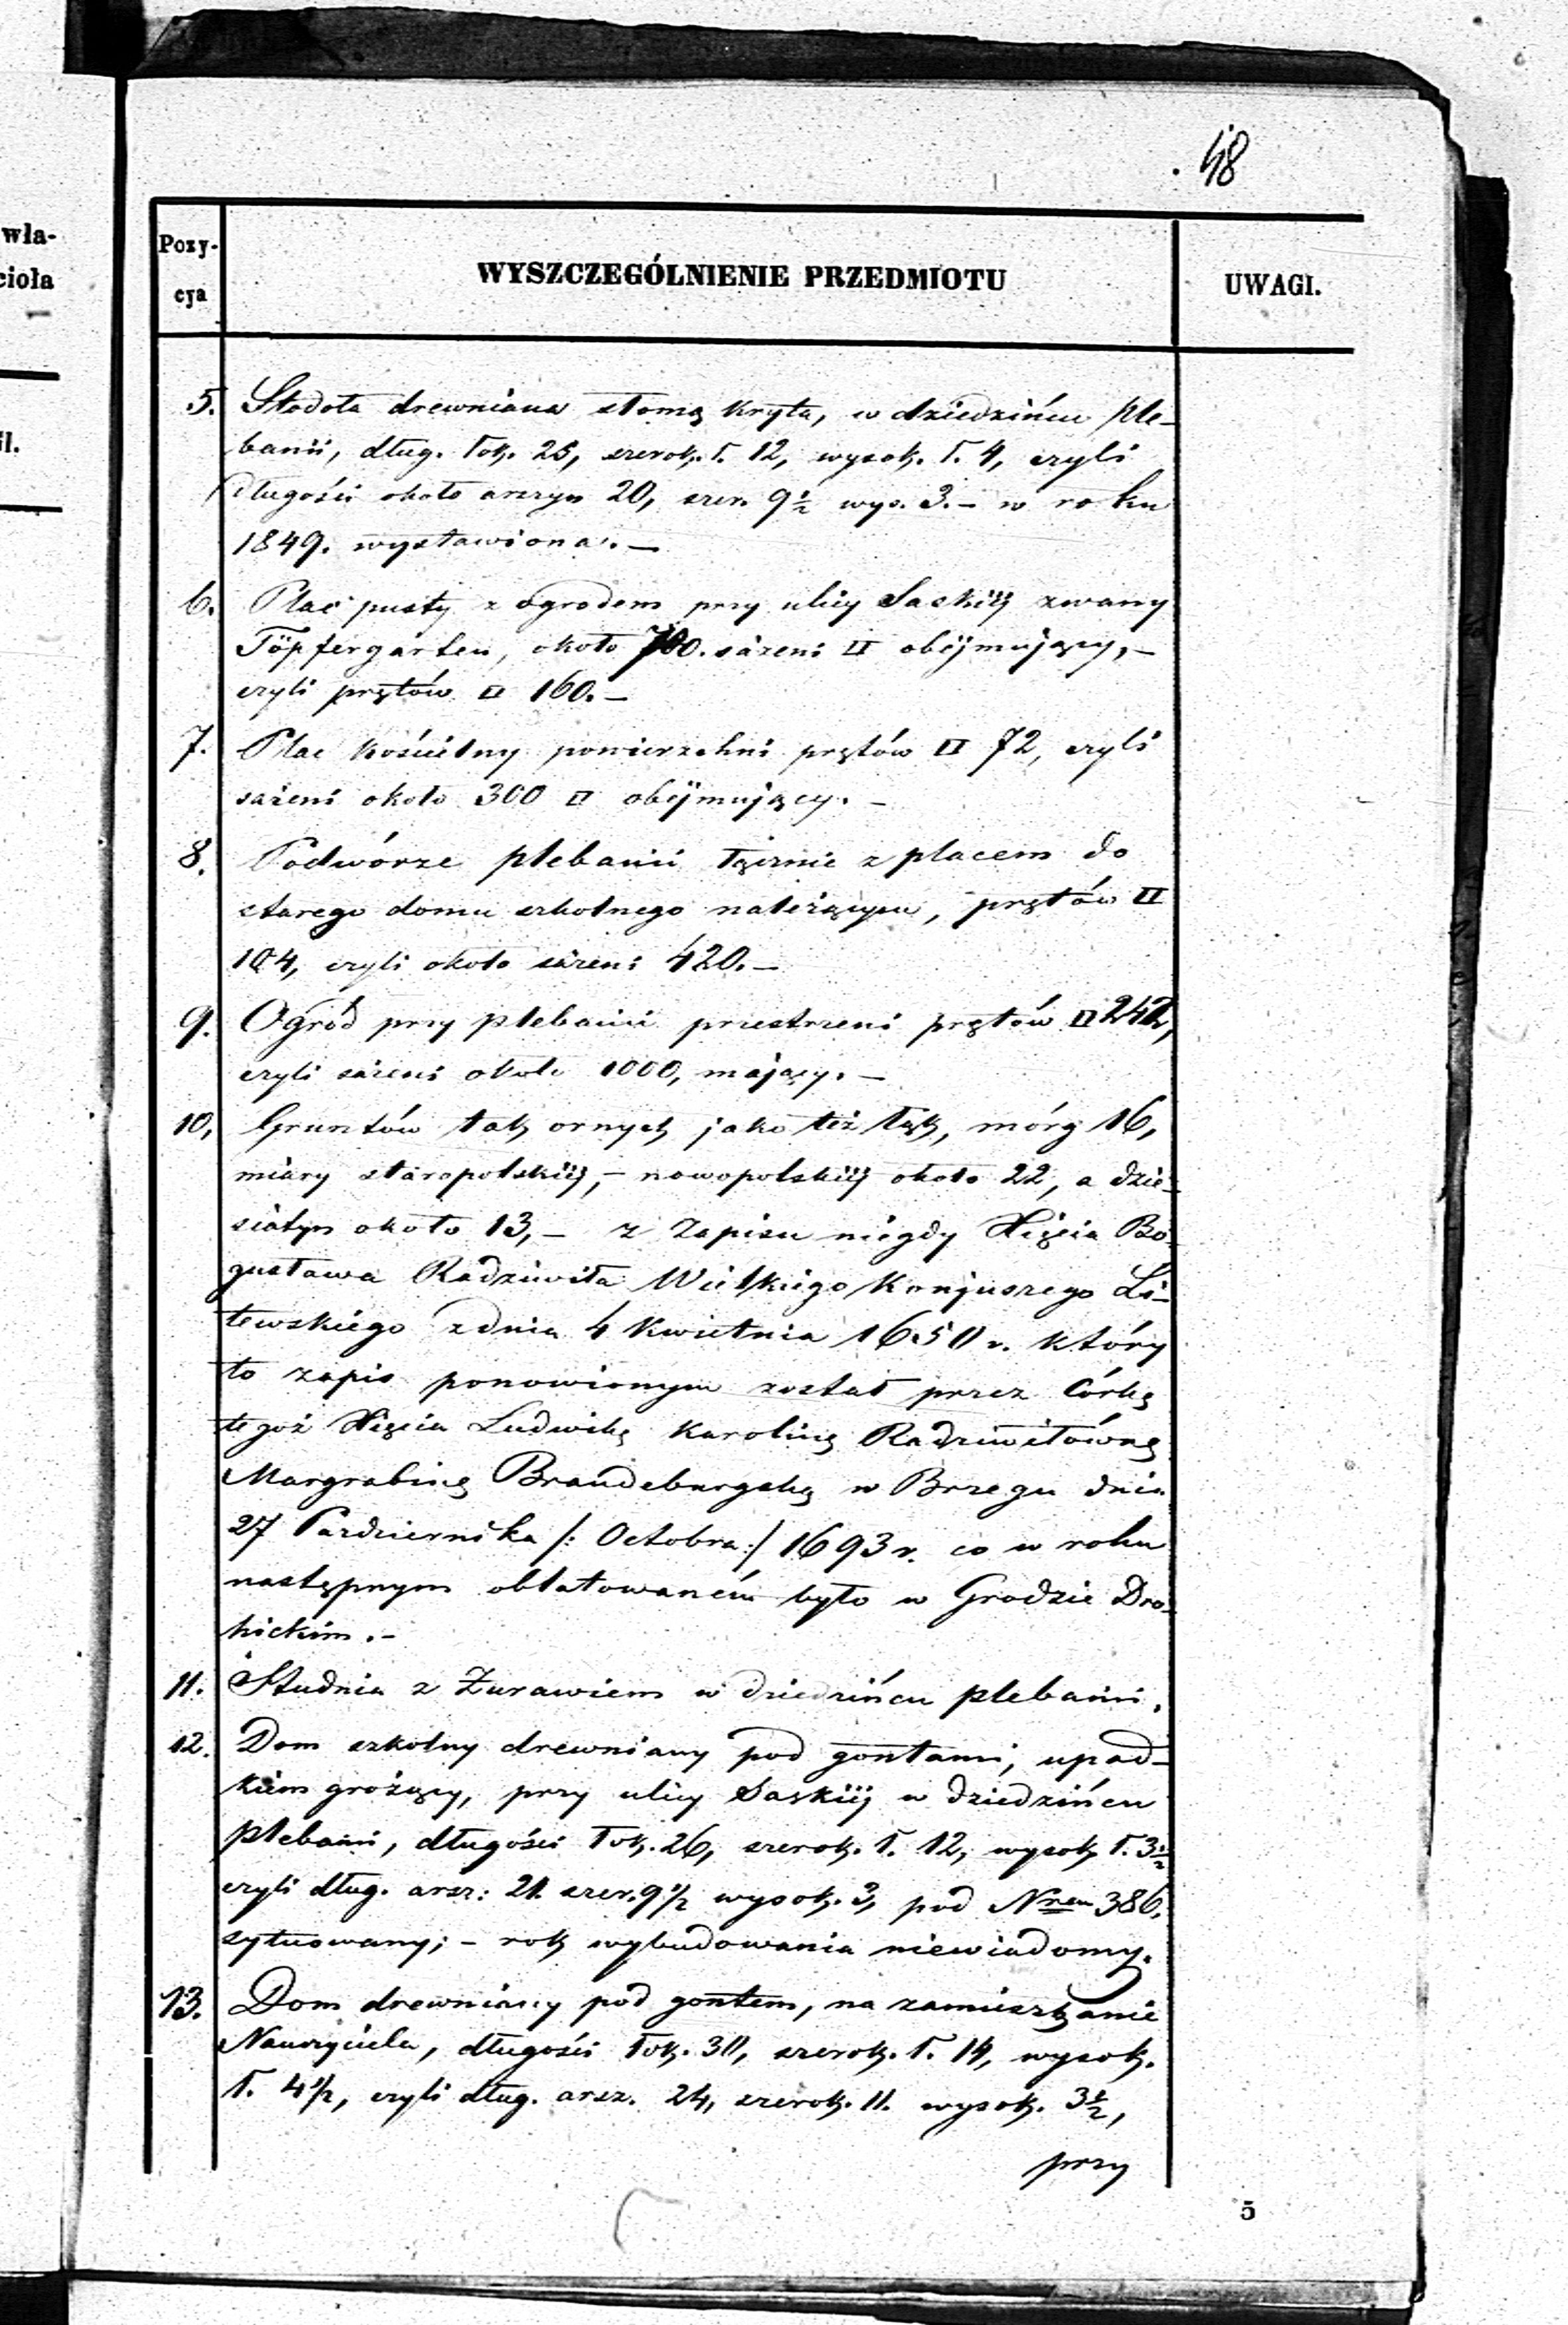 48
wła-
cioła
Pozy-
cya
WYSZCZEGÓLNIENIE PRZEDMIOTU
UWAGI.
5. Stodoła drewniana słomą kryta, w dziedzińcu ple-
banii, dług. łok. 25, szerok. ł. 12, wysok. ł. 4, czyli
długości około arszyn 20, szer. 9½ wys. 3. – w roku
1849. wystawiona. –
6. Plac pusty z ogrodem przy ulicy Saskiéj zwany
Töpfergarten, około 700. sążeni □ obéjmujący, –
czyli prętów □ 160. –
7. Plac kościelny powierzchni prętów □ 72, czyli
sążeni około 300 □ obéjmujący. –
8. Podwórze plebanii łącznie z placem do
starego domu szkolnego należącym, prętów □
104, czyli około sążeni 420. –
9. Ogród przy plebanii przestrzeni prętów □ 242,
czyli sążeni około 1000, mający. –
10. Gruntów tak ornych jako też łąk, mórg 16,
miary staropolskiéj, – nowopolskiéj około 22, a dzie-
siatyn około 13, – z zapisu niegdy Xięcia Bo-
gusława Radziwiła Wielkiego Koniuszego Li-
tewskiego z dnia 4 Kwietnia 1650 r. który
to zapis ponowionym został przez Córkę
tegoż Xięcia Ludwikę Karolinę Radziwiłównę
Margrabinę Brandeburgską w Brzegu dnia
27 Pazdziernika /: Octobra :/ 1693 r. co w roku
następnym oblatowaném było w Grodzie Dro-
hickim. –
11. Studnia z Żurawiem w dziedzińcu plebanii.
12. Dom szkolny drewniany pod gontami, upad-
kiem grożący, przy ulicy Saskiéj w dziedzińcu
plebanii, długości łok. 26, szerok. ł. 12, wysok. ł. 3½
czyli dług. arsz: 21. szer. 9½ wysok. 3, pod Nrem 386.
sytuowany; – rok wybudowania niewiadomy.
13. Dom drewniany pod gontem, na zamieszkanie
Nauczyciela, długości łok. 30, szerok. ł. 14, wysok.
ł. 4½, czyli dług. arsz. 24, szerok. 11. wysok. 3½,
przy
5